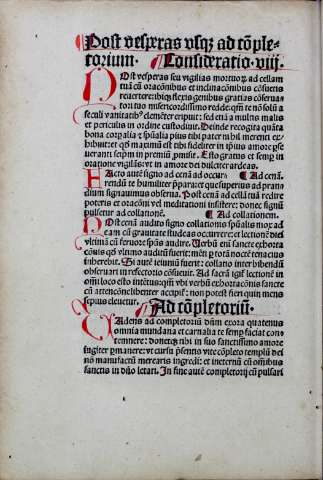 Post vesperas vsq; ad cõple-
torium. Consideratio .viij.
Post vesperas seu vigilias mortuoꝝ ad cellam
tuã cũ oracõnibus et inclinacõnibus cõsuetis
reuertere: ibiq; flexis genibus gratias cõserua
tori tuo misericordissimo redde: qm̃ te nõ solũ a
seculi vanitatib⁹ clemẽter eripuit: sed etiã a multis malis
et periculis in ordine custodiuit. Deinde recogita quãta
bona corꝑalia et spũalia pius tibi pater nihil merenti ex-
hibuit: et qđ maximũ est tibi fideliter in ip̃ius amore ꝑse
ueranti seip̃m in premiũ ꝓmisit. Esto gratus et semꝑ in
oratione vigilans: vt in amore dei dulciter ardeas.
Facto autẽ signo ad cenã od occur: ¶ Ad cenã.
rendũ te humiliter ꝑpara: et que superius ad pran
dium signauimus obserua. Post cenã ad cellã tuã redire
poteris et oracõni vel meditationi insistere: donec signũ
pulsetur ad collationẽ. ¶ Ad collationem.
Post cenã audito signo collationis spũalis mox ad
eam cũ grauitate studeas occurrere: et lectionẽ diei
vltimã cũ feruore spũs audire. Verbũ eni sancte exhorta
cõnis qđ vltimo auditũ fuerit: mẽti ꝑ totã noctẽ tenacius
inherebit. Si autẽ ieiuniũ fuerit: collatio inter bibendũ
obseruari in refectorio cõsueuit. Ad sacrã igit̃ lectionẽ in
om̃i loco esto intẽtus: qm̃ vbi verbũ exhortacõnis sancte
cũ attencõne libenter accipit̃: non potest fieri quin mens
sepius eleuetur. Ad cõpletoriũ.
Vadens ad completoriũ dũm exora quatenus
omnia mundana et carnalia te semꝑ faciat con
temnere: donec ꝗ tibi in suo sanctissimo amore
iugiter ꝑmanere: vt cursu p̃sentis vite cõpleto templũ dei
nõ manufactũ merearis ingredi: et in eternũ cũ omnibus
sanctis in dño letari. In fine autẽ completorij cũ pulsari